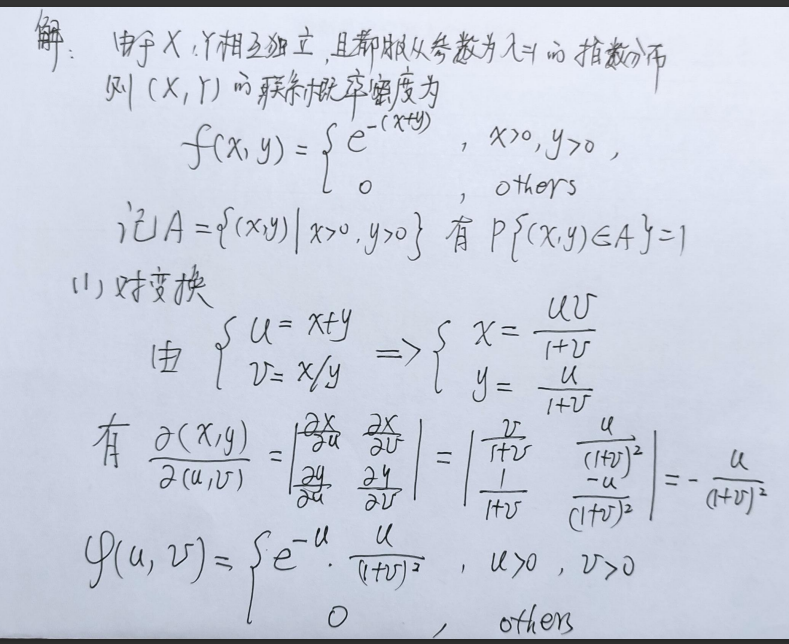 解: 由于X,Y相互独立,且都服从参数为λ=1的指数分布
则(X,Y)的联合概率密度为
f(x,y) = { e^{-(x+y)} , x>0, y>0 ,
0 , others
记A={(x,y)|x>0,y>0} 有 P{(X,Y)∈A}=1
(1)对变换
由 { u = x+y => { x = uv/(1+v)
v = x/y y = u/(1+v)
有 ∂(x,y)/∂(u,v) = | ∂x/∂u ∂x/∂v ; ∂y/∂u ∂y/∂v | = | v/(1+v) u/(1+v)² ; 1/(1+v) -u/(1+v)² | = - u/(1+v)²
φ(u,v) = { e^{-u} · u/(1+v)² , u>0 , v>0
0 , others